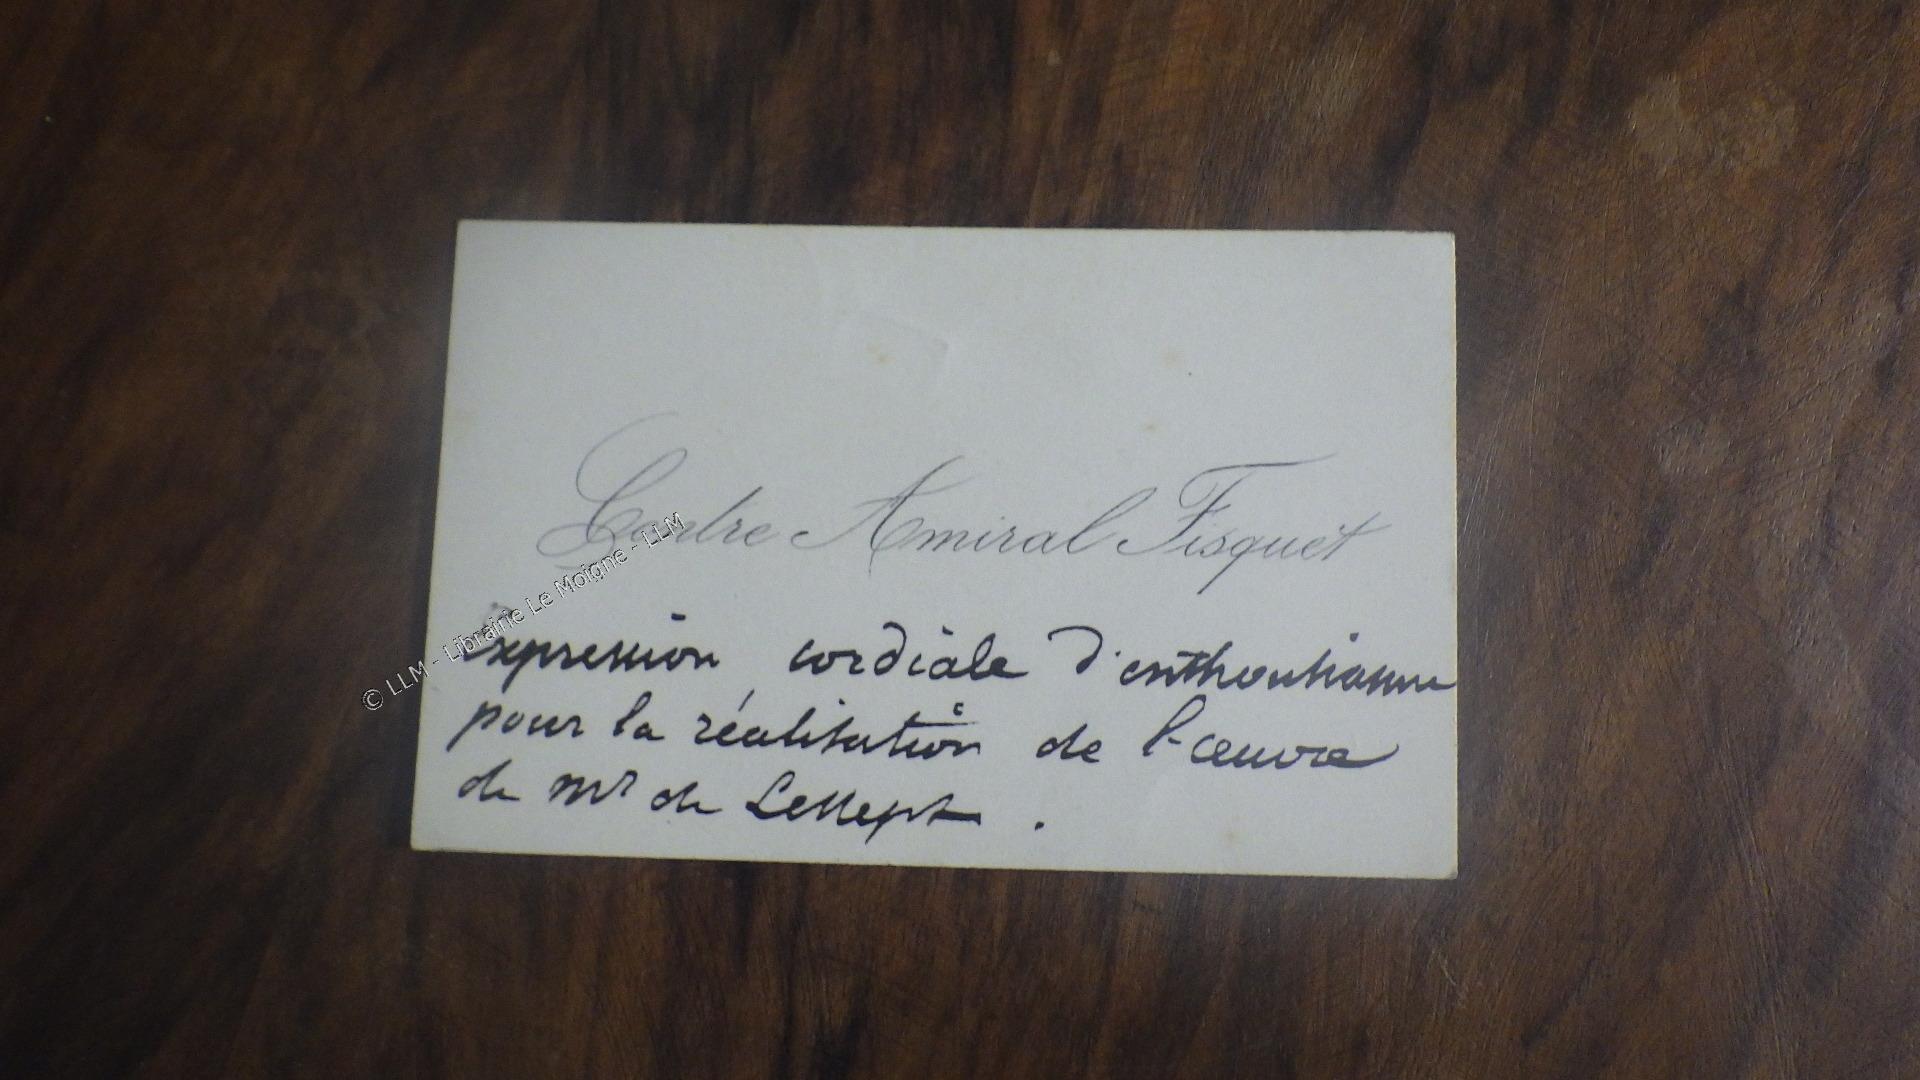 Contre Amiral Fisquet
Expression cordiale d'enthousiasme
pour la réalisation de l'œuvre
de Mr de Lesseps.
© LLM - Librairie Le Moigne - LLM